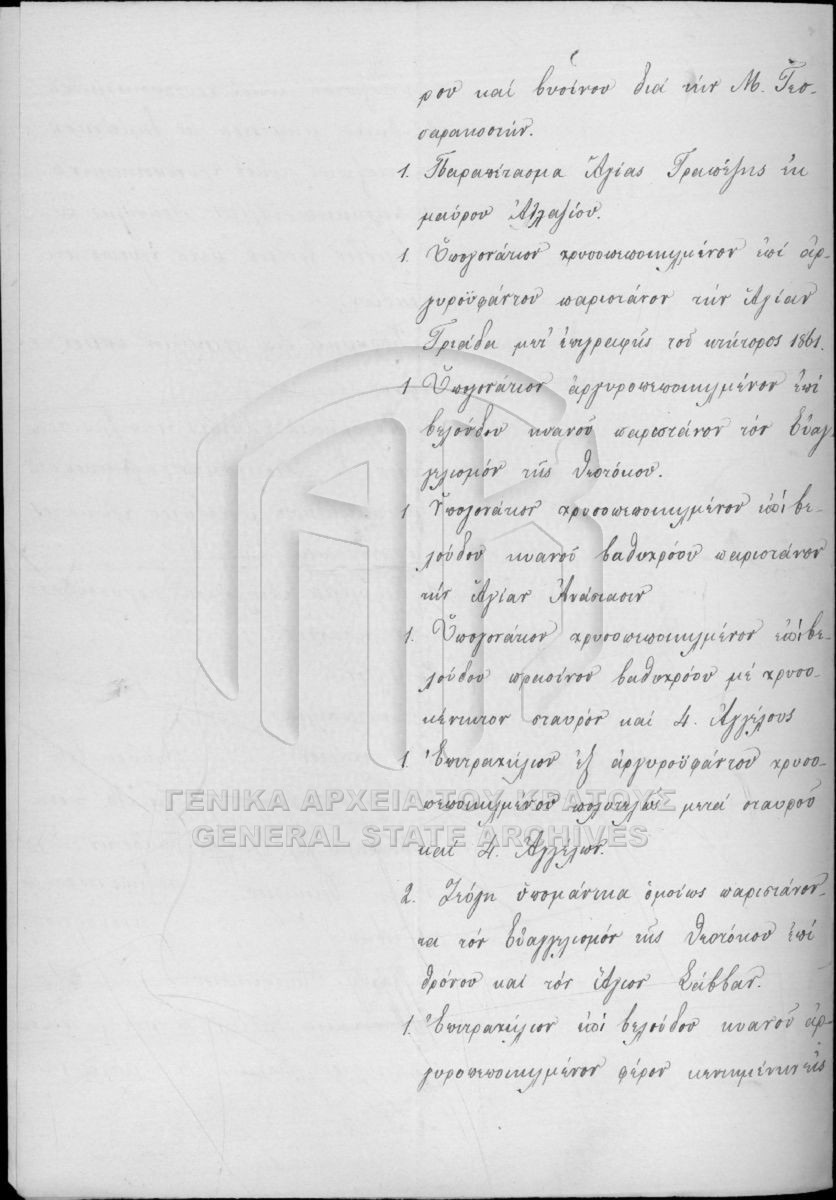 ρου καί βυσίνου διά τήν Μ. Τεσ-
σαρακοστήν.
1. Παραπέτασμα Ἁγίας Τραπέζης ἐκ
μαύρου Ἀτλαζίου.
1. Ὑπογονάτιον χρυσοπεποικιλμένον ἐπί ἀρ-
γυροϋφάντου παριστάνον τήν Ἁγίαν
Τριάδα μετ' ἐπιγραφῆς τοῦ κτήτορος 1861.
1 Ὑπογονάτιον ἀργυροπεποικιλμένον ἐπί
βελούδου κυανοῦ παριστάνον τόν Εὐαγ
γελισμόν τῆς Θεοτόκου.
1 Ὑπογονάτιον χρυσοπεποικιλμένον ἐπί βε-
λούδου κυανοῦ βαθυχρόου παριστάνον
τήν Ἁγίαν Ἀνάστασιν
1. Ὑπογονάτιον χρυσοπεποικιλμένον ἐπί βε-
λούδου πρασίνου βαθυχρόου μέ χρυσο-
κέντητον σταυρόν καί 4. Ἀγγέλους
1. Ἐπιτραχήλιον ἐξ ἀργυροϋφάντου χρυσο-
πεποικιλμένου πολυτελῶς μετά σταυροῦ
καί 4. Ἀγγέλων.
2. Ζεύγη ὑπομάνικα ὁμοίως παριστάνον-
τα τόν Εὐαγγελισμόν τῆς Θεοτόκου ἐπί
θρόνου καί τόν Ἅγιον Σάββαν.
1. Ἐπιτραχήλιον ἐπί βελούδου κυανοῦ ἀρ-
γυροπεποικιλμένον φέρον κεντημένην εἰς
ΓΕΝΙΚΑ ΑΡΧΕΙΑ ΤΟΥ ΚΡΑΤΟΥΣ
GENERAL STATE ARCHIVES